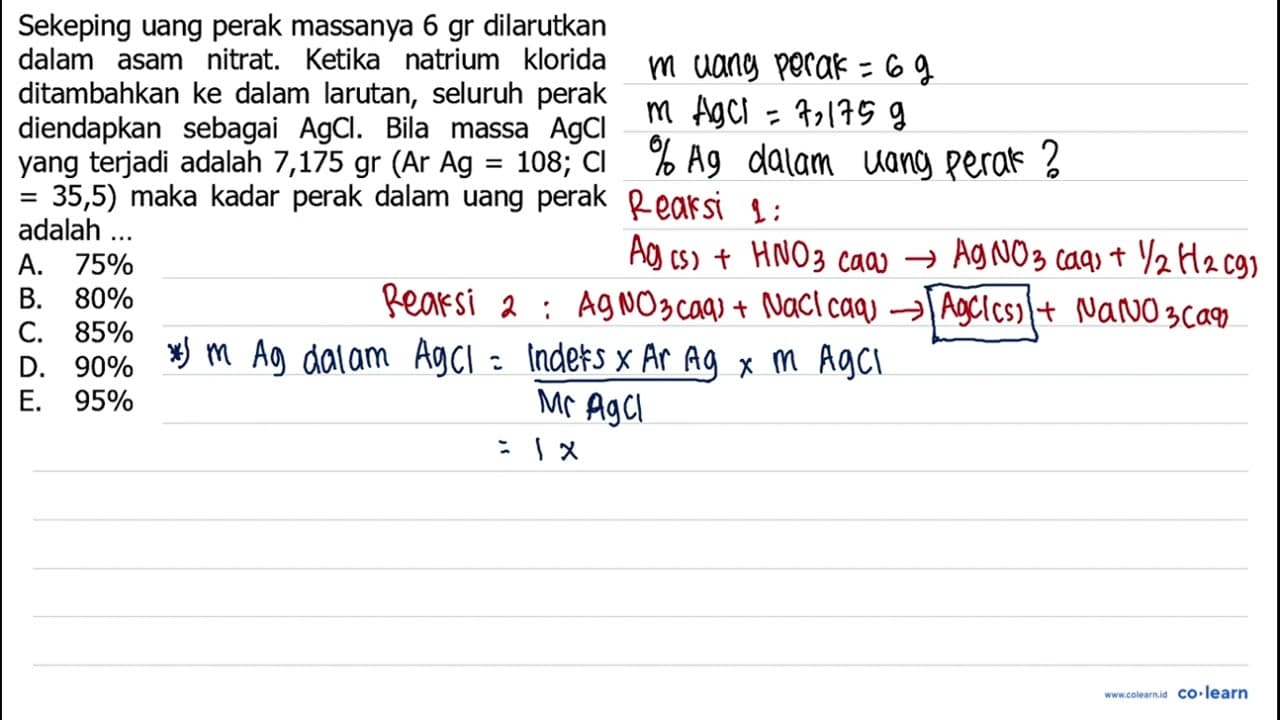 Sekeping uang perak massanya 6 gr dilarutkan
dalam asam nitrat. Ketika natrium klorida
ditambahkan ke dalam larutan, seluruh perak
diendapkan sebagai AgCl. Bila massa AgCl
yang terjadi adalah 7,175 gr (Ar Ag = 108; Cl
= 35,5) maka kadar perak dalam uang perak
adalah ...
A. 75%
B. 80%
C. 85%
D. 90%
E. 95%
m uang perak = 6 g
m AgCl = 7,175 g
% Ag dalam uang perak ?
Reaksi 1 :
Ag (s) + HNO3 (aq) → AgNO3 (aq) + 1/2 H2 (g)
Reaksi 2 : AgNO3 (aq) + NaCl (aq) → AgCl (s) + NaNO3 (aq)
*) m Ag dalam AgCl = Indeks x Ar Ag x m AgCl
Mr AgCl
= 1 x
www.colearn.id co·learn